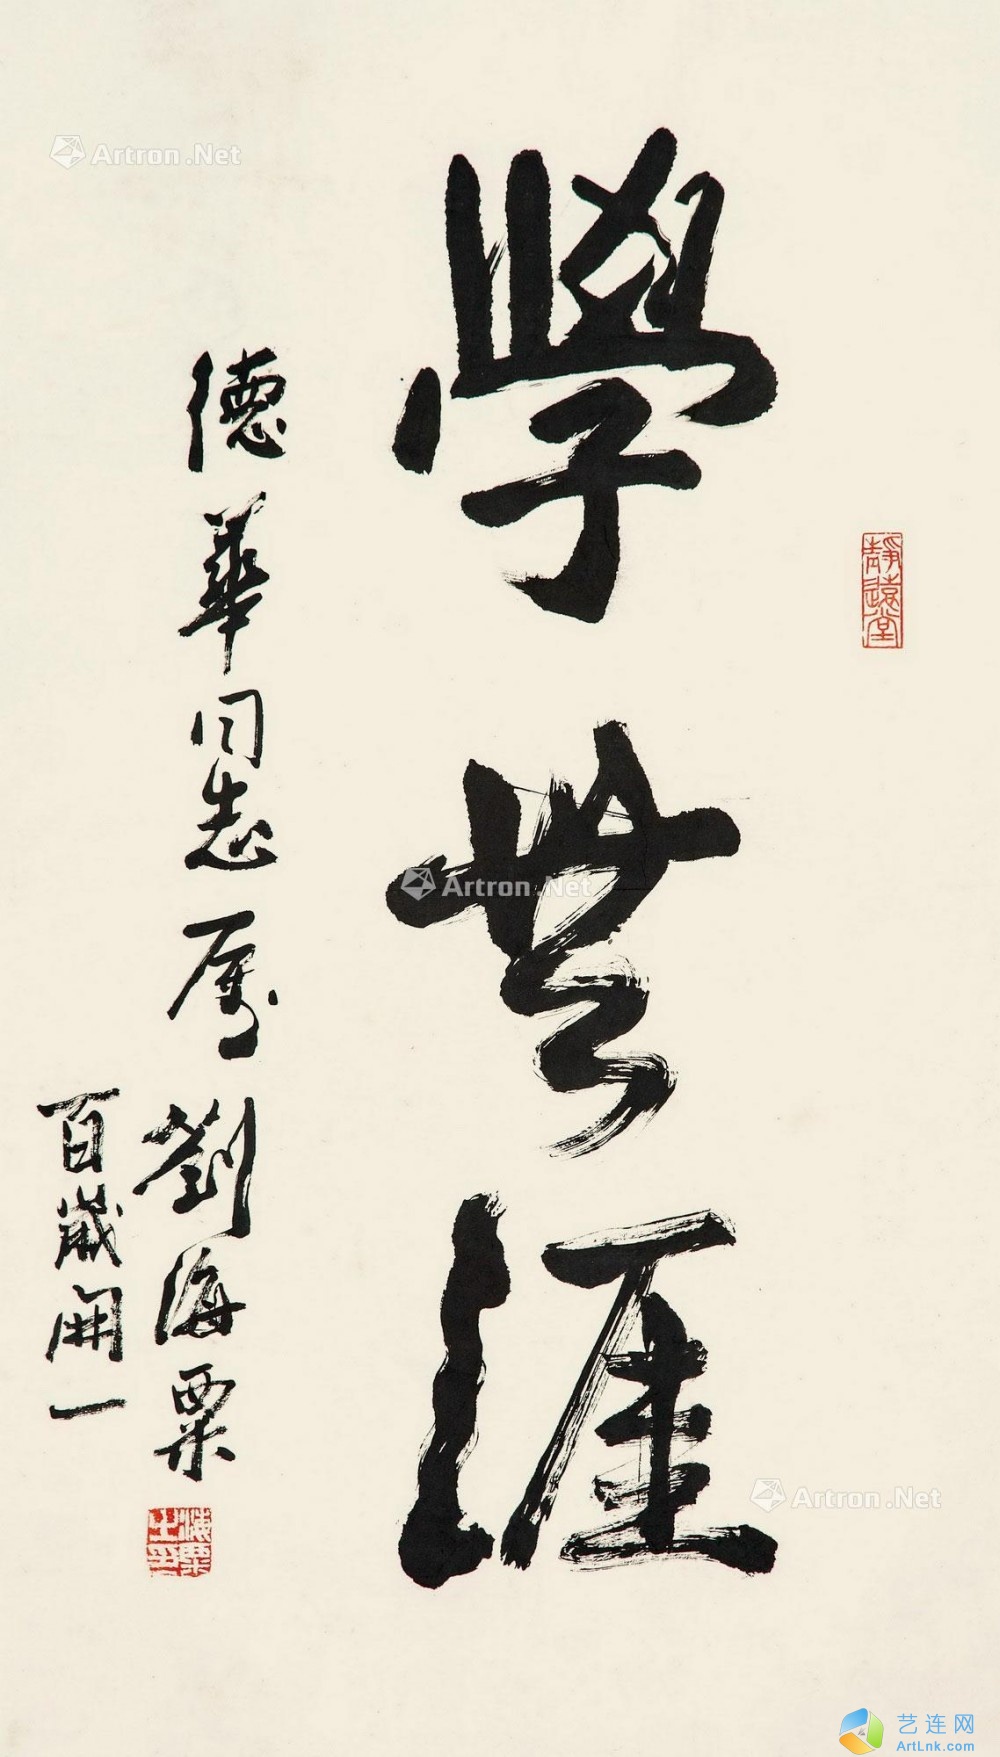 學無涯
德華同志属
劉海粟
百歲開一
靜遠堂
海粟之印
Artron.Net
Artron.Net
Artron.Net
艺连网
ArtLnk.com